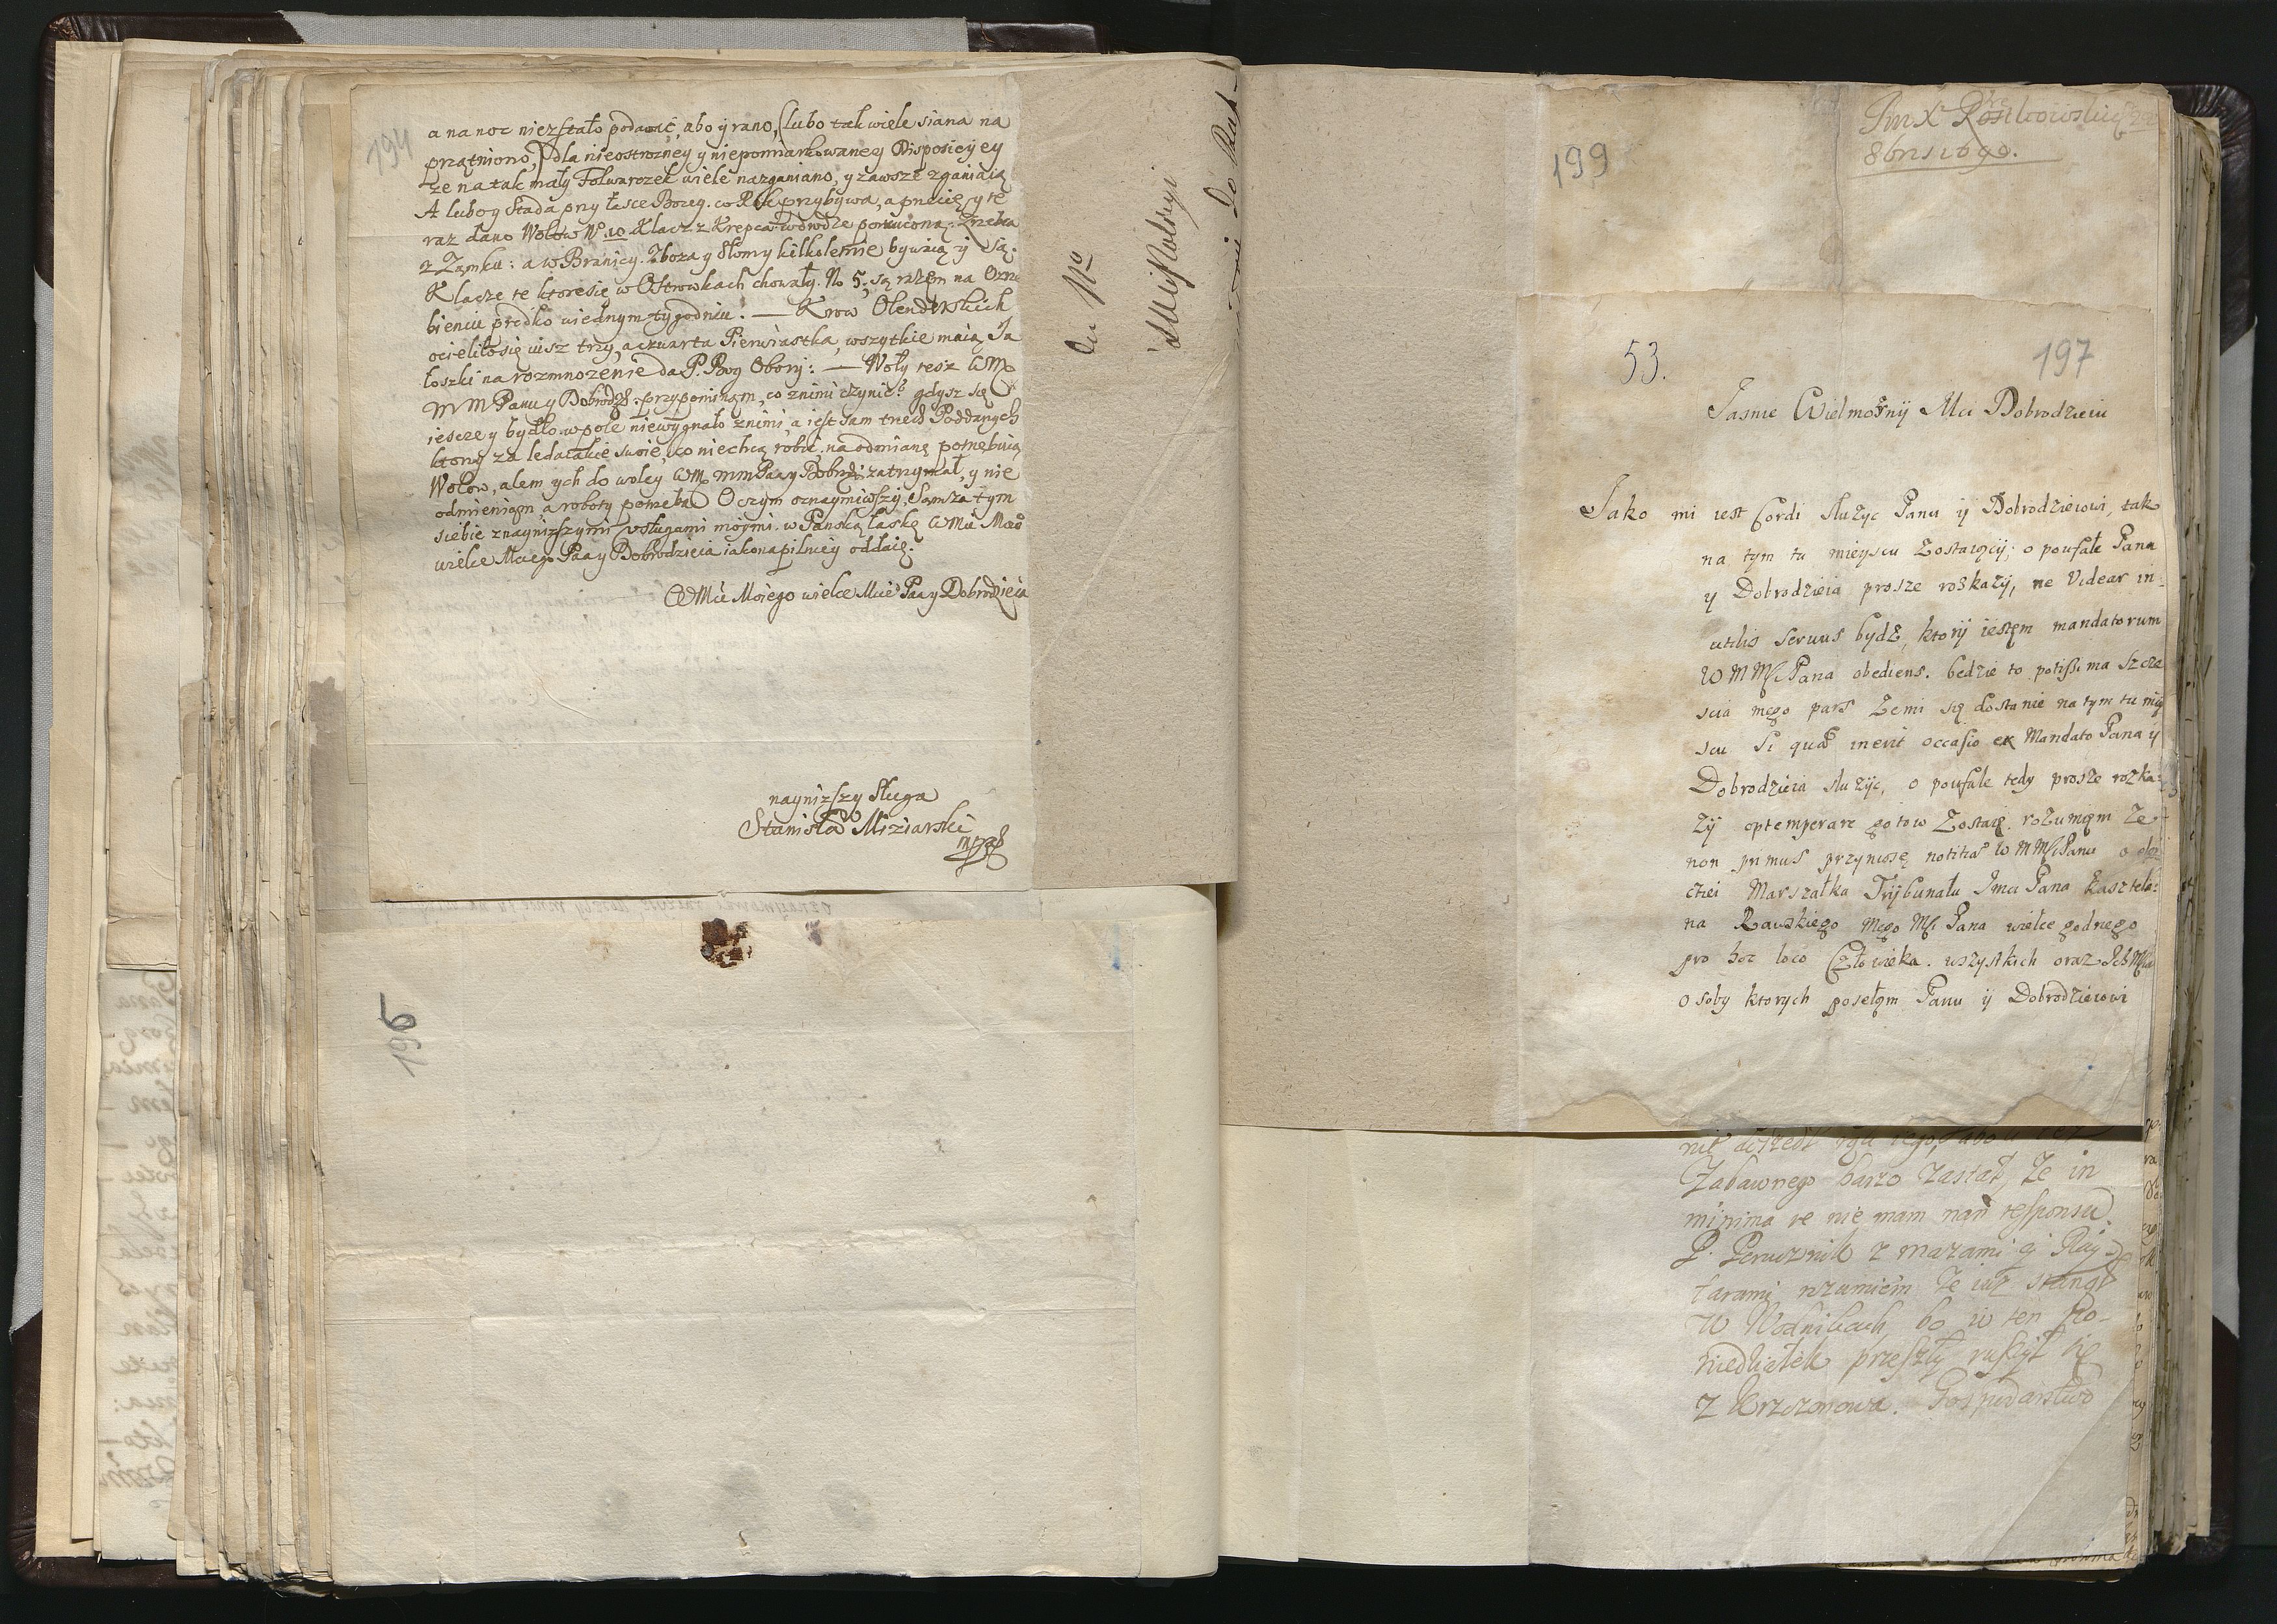 194
a na noc niezstało podawać, abo y rano, lubo tak wiele siana na
prządniono, dla nieostrozney y niepomiarkowaney Disposicyey
ze na tak mały Folwarczek wiele nazganiano, y zawsze zganiaią
A luboy Stada przy łasce Bozey. co Rok przybywa, a przecię y te
raz dano Wołow No 10 Klacz z Krepca w drodze porzuconą. Zrebca
z Zamku: a w Branicy. Zboza y Słomy kilkoletnie bywaią y są.
Klacze te ktore się w Ostrowkach chowały. No 5. są razem na Ozre
bieniu prędko w iednym tygodniu. — Krow Olenderskich
ocieliło się iusz trzy, a czwarta Pierwiastka, wszytkie maią Ja
łoszki na rozmnozenie da P. Bog Obory: — Woły tesz WM
MM Panu y Dobrodz. przypominam, co znimi czynić? gdysz się
iescze y bydło w pole niewygnało znimi, a iest sam trzech Poddanych
ktorzy za ledaiakie swoie, co niechcą robić, na odmianę potrzebuią
Wołow, alem ych do woley WM mm Paa y Dobrdz: zatrzymał, y nie
odmieniam a roboty potrzeba O czym oznaymiwszy, Sam za tym
siebie z naynizszymi usługami moymi. w Panską łaskę WMci Mego
wielce Mciego Paa y Dobrodzieia iako napilniey oddaię.
WMci Moiego wielce Mcie Paa y Dobrodzieia
naynizszy Sługa
Stanisław Miziarski
mpp
196
199
8bris 1690.
53.
197
Jasnie Wielmożnÿ Mci Dobrodzieiu
Jako mi iest Cordi służyc Panu ÿ Dobrodzieiowi, tak
na tym tu mieyscu Zostaiący; o poufałe Pana
y Dobrodzieia prosze roskazÿ, ne Videar in-
utilis servus bydź, ktorÿ iestęm mandatorum
W M Mści Pana obediens. bedzie to potissima szczę
scia mego pars Ze mi się dostanie na tym tu miÿ
scu Si qua inerit occasio ex Mandato Pana ÿ
Dobrodzieia służÿc, o poufałe tedy prosze rozka-
Zÿ optemperare gotow Zostaię. rozumięm Ze
non primus przynioszę notitia W M Mści Panu o ele
ctiei Marszałka Trÿbunału Jmci Pana Kasztela-
na Rawskiego Mego Mści Pana wielce godnego
pro hoc loco Człowieka. wszystkich oraz Ich Mści
osoby ktorych posełam Panu ÿ Dobrodzieiowi
Zabawnego barzo Zastał, Ze in
minima re nie mam nań responsu.
P. Porucznik z mazami ÿ Raÿ-
tarami rozumiem Ze iuz stanął
W Wodnikach, bo w ten Po-
niedziałek przeszły ruszył się
z Krzczonowa. Gospodarstwo